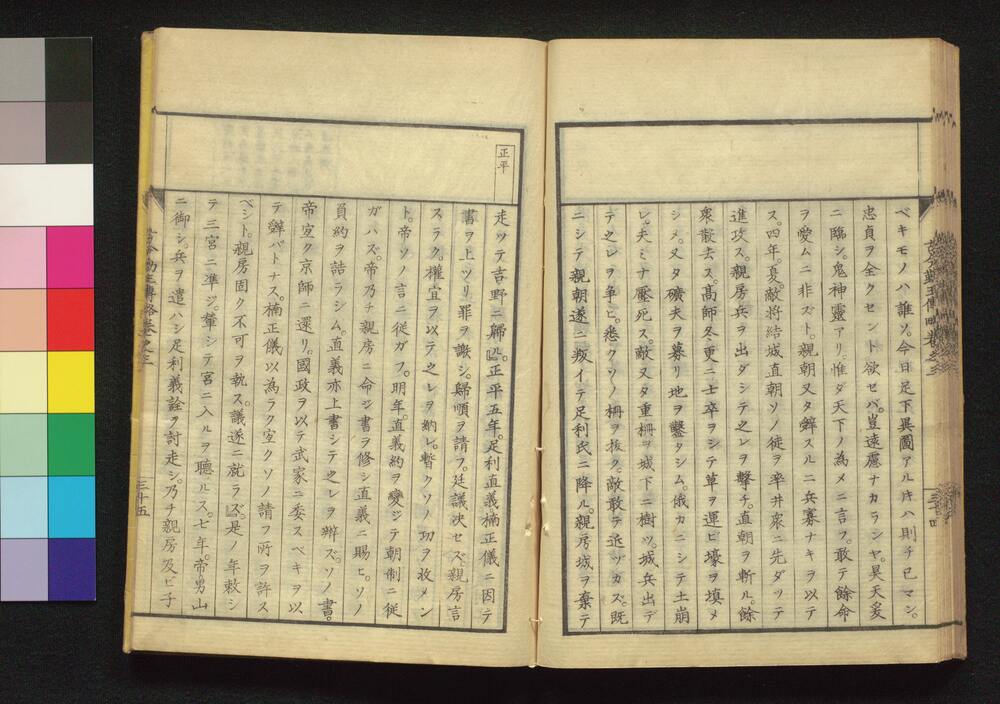 ベキモノハ誰ソ。今日足下異圖アル𪜈ハ則チ已マン。
忠貞ヲ全クセント欲セバ。豈遠慮ナカランヤ。昊天爰
ニ臨シ。鬼神靈アリ。惟ダ天下ノ為メニ言フ。敢テ餘命
ヲ愛ムニ非ズト。親朝又タ辭スルニ兵寡ナキヲ以テ
ス。四年。夏。敵將結城直朝ソノ徒ヲ率井衆ニ先ダツテ
進攻ス。親房兵ヲ出ダシテ之レヲ擊チ。直朝ヲ斬ル。餘
衆散去ス。高師冬更ニ士卒ヲシテ草ヲ運ビ壕ヲ塡メ
シメ。又タ礦夫ヲ募リ地ヲ鑿タシム。俄カニシテ土崩
レ。夫ミナ壓死ス。敵又タ重柵ヲ城下ニ樹ツ。城兵出デ
テ之レヲ爭ヒ。悉クソノ柵ヲ拔ク。敵敢テ近ヅカズ。既
ニシテ親朝遂ニ叛イテ足利氏ニ降ル。親房城ヲ棄テ
古今勤王傳略卷之三
三十四
正平
走ツテ吉野ニ歸ル。』正平五年。足利直義楠正儀ニ因テ
書ヲ上ツリ罪ヲ謝シ。歸順ヲ請フ。廷議決セズ。親房言
スラク。權宜ヲ以テ之レヲ納レ。暫クソノ功ヲ收メン
ト。帝ソノ言ニ從ガフ。明年。直義約ヲ變ジテ朝制ニ從
ガハズ。帝乃チ親房ニ命ジ書ヲ修シ直義ニ賜ヒ。ソノ
員約ヲ詰ラシム。直義亦上書シテ之レヲ辨ズ。ソノ書。
帝宜ク京師ニ還リ。國政ヲ以テ武家ニ委スベキヲ以
テ辭バトナス。楠正儀以為ラク宜クソノ請フ所ヲ許ス
ベシト。親房固ク不可ヲ執ス。議遂ニ就ラズ。』是ノ年敕シ
テ三宮ニ準ジ。輦シテ宮ニ入ルヲ聽ルス。七年。帝男山
ニ御シ。兵ヲ遣ハシ足利義詮ヲ討走シ。乃チ親房及ビ子
古今勤王傳略卷之三
三十五